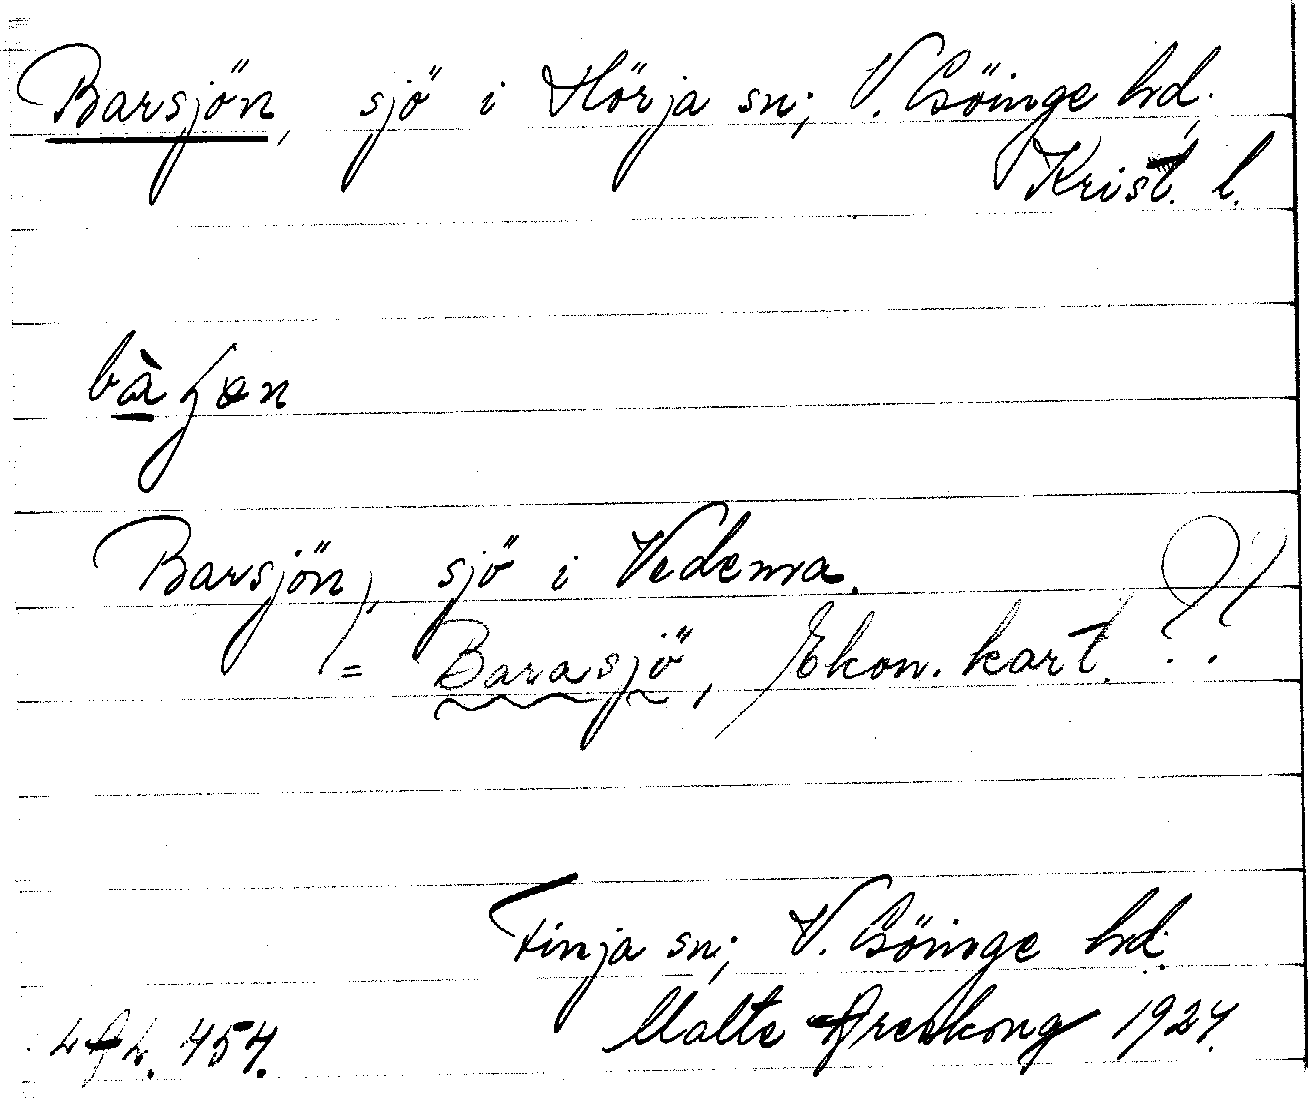 Barsjön, sjö i Hörja sn; V. Göinge hd.
Krist. l.
Barsjön), sjö i Vedema.
= Barasjö, Ekon. kart. ??
Finja sn; V. Göinge hd.
Malte Areskoug 1927.
454.